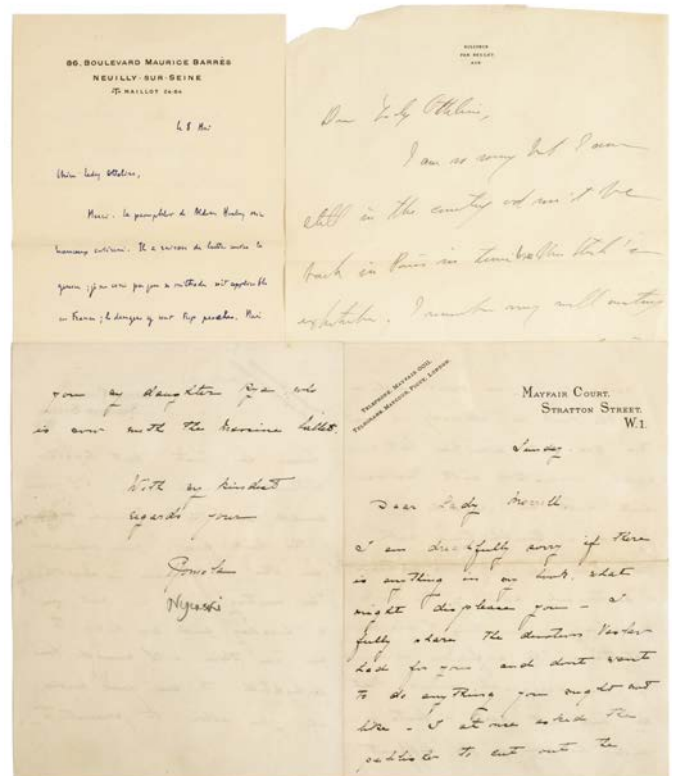 86, BOULEVARD MAURICE BARRÈS
NEUILLY-SUR-SEINE
MAILLOT
le 8 Mai
Chère Lady Ottoline,
Merci. Le pamphlet de Aldous Huxley
Il a raison de lutter contre la
guerre ; je ne crois pas que sa méthode soit applicable
en France ; le danger y est trop proche. Mais
Dear Lady Ottoline,
I am so sorry but I am
still in the country and won't be
back in Paris in time
exhibition. I remember very well
your my daughter Kyra who
is now with the Massine ballet.
With my kindest
regards your
Romola
Nijinski
TELEPHONE, MAYFAIR
TELEGRAMS, LONDON.
MAYFAIR COURT,
STRATTON STREET,
W.1.
Sunday.
Dear Lady Morrell.
I am dreadfully sorry if there
is anything in my book, what
might displease you – I
fully share the devotion Vaslav
had for you and dont want
to do anything you might not
like – I at once asked the
publisher to cut out the